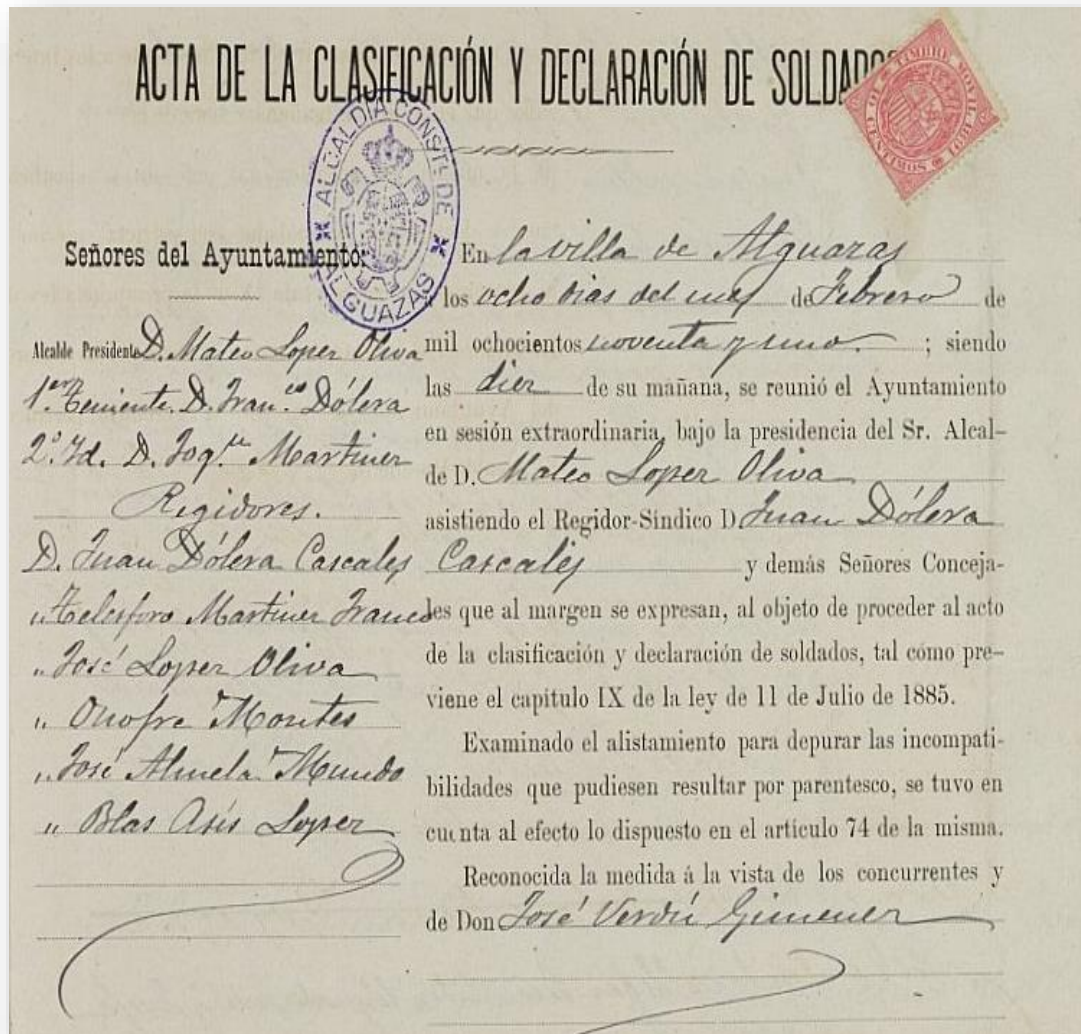 ACTA DE LA CLASIFICACIÓN Y DECLARACIÓN DE SOLDADOS
TIMBRE MOVIL 1891
10 CENTIMOS
ALCALDIA CONST. DE
ALGUAZAS
Señores del Ayuntamiento:
Alcalde Presidente D. Mateo Loper Oliva
1.er Teniente. D. Fran.co Dólera
2.º Id. D. Joq.n Martiner
Regidores.
D. Juan Dólera Cascales
" Telesforo Martiner Franco
" José Loper Oliva
" Onofre Montes
" José Almela Mundo
" Blas Asís Loper
En la villa de Alguazas
á los ocho dias del mes de Febrero de
mil ochocientos noventa y uno. ; siendo
las dier de su mañana, se reunió el Ayuntamiento
en sesión extraordinaria, bajo la presidencia del Sr. Alcal-
de D. Mateo Loper Oliva
asistiendo el Regidor-Síndico D Juan Dólera
Cascales y demás Señores Conceja-
les que al margen se expresan, al objeto de proceder al acto
de la clasificación y declaración de soldados, tal como pre-
viene el capitulo IX de la ley de 11 de Julio de 1885.
Examinado el alistamiento para depurar las incompati-
bilidades que pudiesen resultar por parentesco, se tuvo en
cuenta al efecto lo dispuesto en el artículo 74 de la misma.
Reconocida la medida á la vista de los concurrentes y
de Don José Verdú Gimener